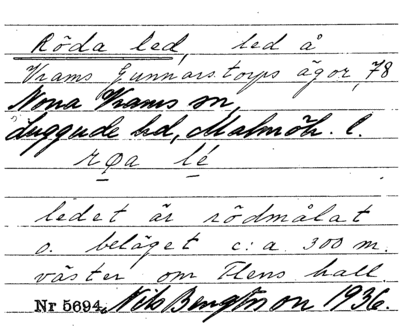 Röda led, led å
Vrams Gunnarstorps ägor, 78
Nona Vrams sn,
Luggude hd, Malmöh. l.
røa lé
ledet är rödmålat
o. beläget c:a 300 m.
väster om Flens hall.
Nr 5694. Nils Bengtson 1936.